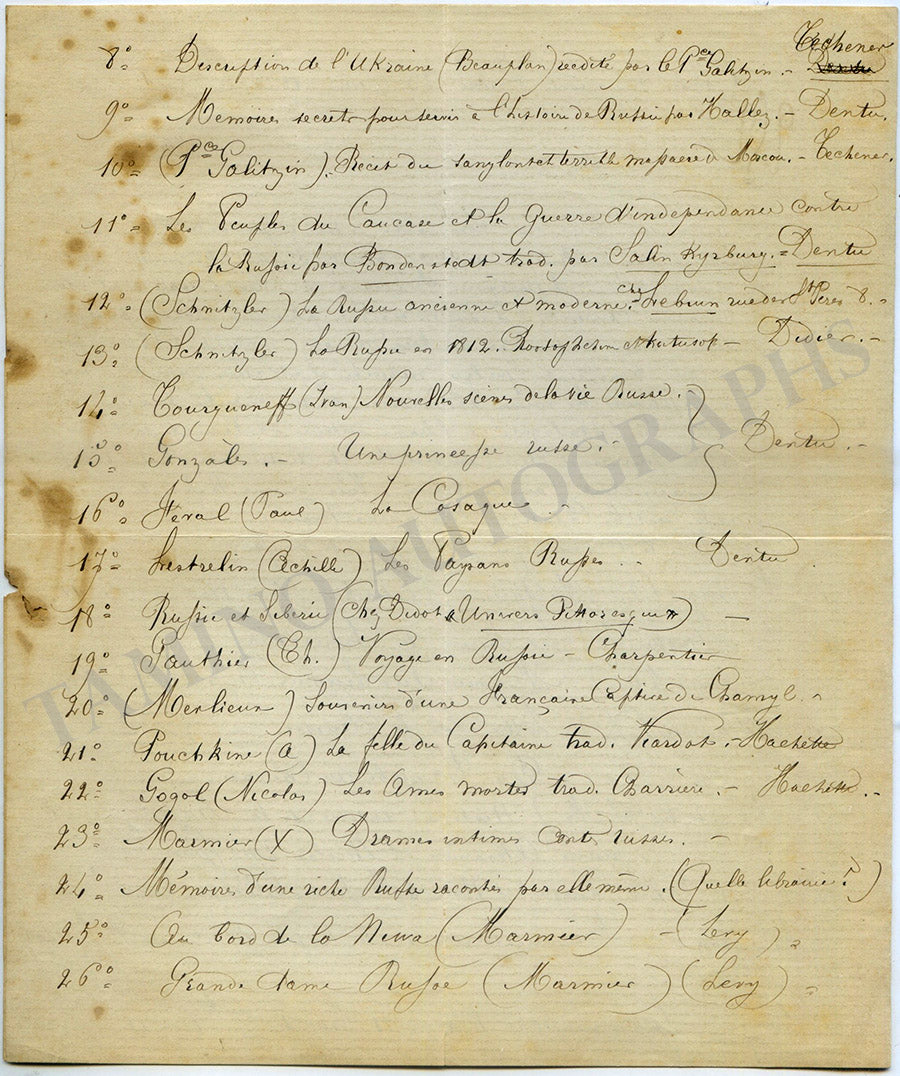 Techener
8° Description de l'Ukraine (Beauplan) réédité par le Pce Galitzin. -
9° Memoires secrets pour servir à l'histoire de Russie par Hallez. - Dentu.
10° (Pce Galitzin). Recit du sanglant et terrible massacre de Moscou. - Techener.
11° Les Peuples du Caucase et la Guerre d'independance contre
la Russie par Bondenstedt trad. par Salin Kyrburg. = Dentu
12° (Schnitzler) La Russie ancienne et moderne. - chez Lebrun rue des Sts Peres 8. -
13° (Schnitzler) La Russie en 1812. Rostopchin et Kutusof - Didier. -
14° Tourgueneff (Ivan) Nouvelles scènes de la vie Russe. -
15° Gonzalès. - Une princesse russe. - Dentu. -
16° Féval (Paul) La Cosaque. -
17° Lestrelin (Achille) Les Paysans Russes. - Dentu
18° Russie et Siberie (Chez Didot «Univers Pittoresque») -
19° Gauthier (Th.) Voyage en Russie - Charpentier
20° (Merlieux) Souvenirs d'une Française Captive de Chamyl -
21° Pouchkine (A) La fille du Capitaine trad. Viardot. - Hachette
22° Gogol (Nicolas) Les Ames mortes trad. Charrière. - Hachette. -
23° Marmier (X) Drames intimes contes russes. -
24° Mémoires d'une riche Russe racontés par elle même. (Quelle librairie?)
25° Au bord de la Newa (Marmier) - (Levy)
26° Grande dame Russe (Marmier) (Levy)
TAMINO AUTOGRAPHS